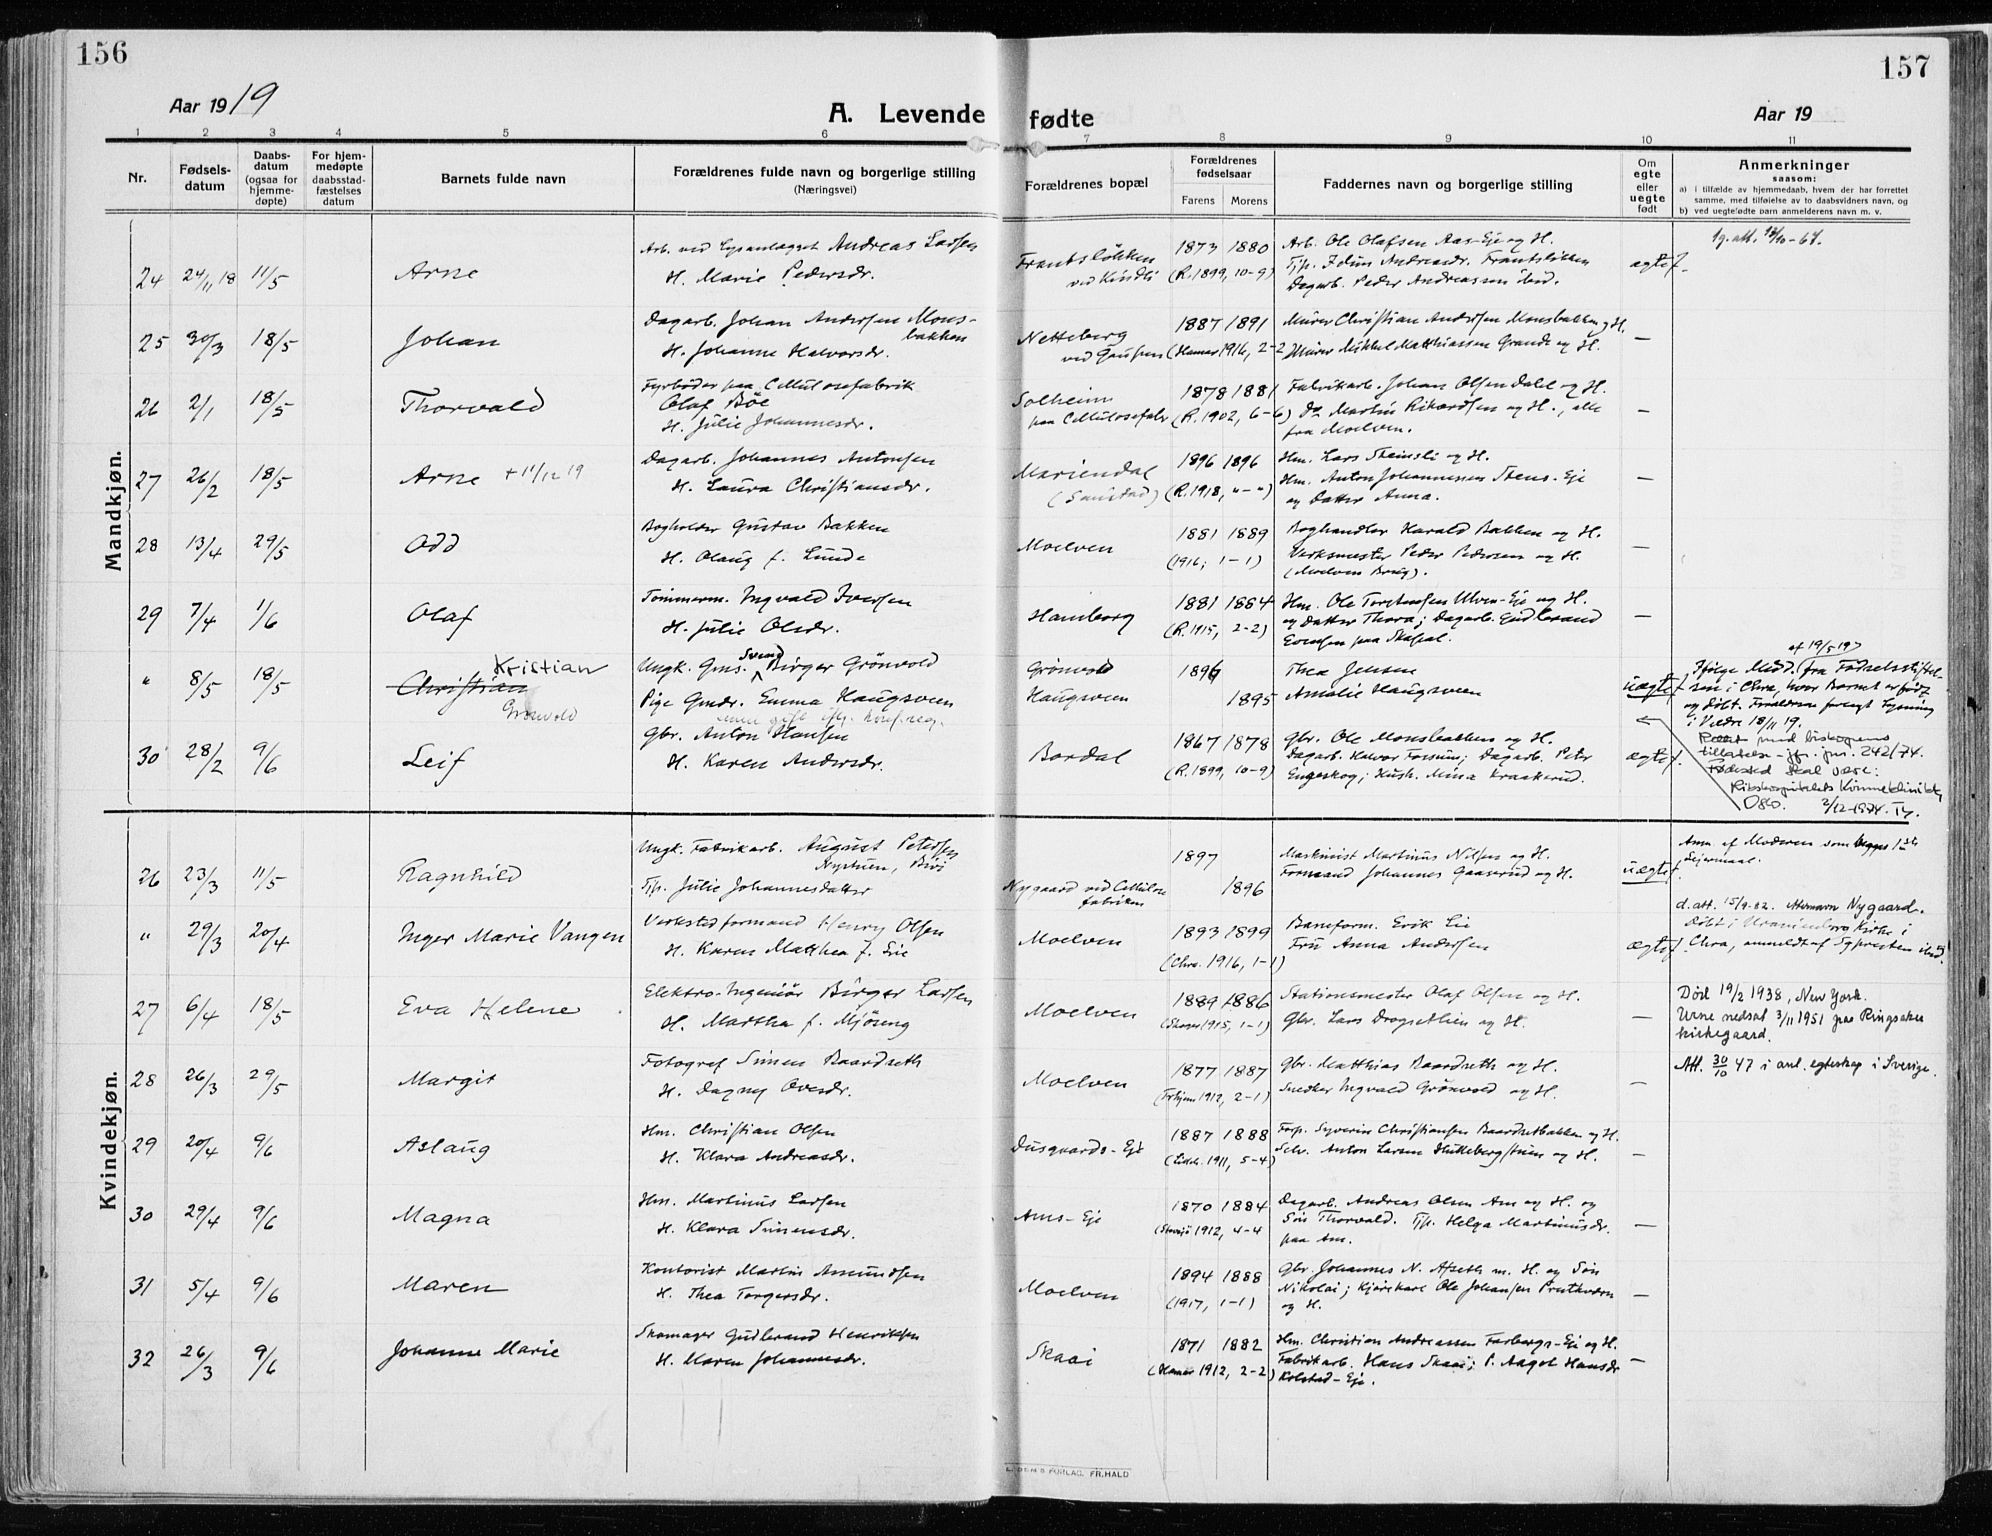 156
157
Aar 1919
A. Levende fødte
Aar 19
1 2 3 4 5 6 7 8 9 10 11
Nr.
Fødsels-
datum
Daabs-
datum
(ogsaa for
hjemme-
døpte)
For hjem-
medøpte
daabsstad-
fæstelses
datum
Barnets fulde navn
Forældrenes fulde navn og borgerlige stilling
(Næringsvei)
Forældrenes bopæl
Forældrenes
fødselsaar
Farens Morens
Faddernes navn og borgerlige stilling
Om
egte
eller
uegte
født
Anmerkninger
saasom:
a) i tilfælde av hjemmedaab, hvem der har forrettet
samme, med tilføielse av to daabsvidners navn, og
b) ved uegtefødte barn anmelderens navn m. v.
Mandkjøn.
24 24/11 18 11/5 Arne
Arb. ved Lysanlægget Andreas Larsen
H. Marie Pedersdr.
Frantsløkken
ved Kindli
1873 1880
(R. 1899, 10-9)
Arb. Ole Olafsen Aas-Eje og H.
Tjp. Idun Andreasdr. Frantsløkken
Dagarb. Peder Andreassen ibid.
ægtef.
25 30/3 18/5 Johan
Dagarb. Johan Andersen Mons-
bakken
H. Johanne Halvorsdr.
Netteberg
ved Gaupen
1887 1891
(Hamar 1916, 2-2
Murer Christian Andersen Monsbakken og H.
Murer Mikkel Matthiassen Grande og H.
—
26 2/1 18/5 Thorvald
Fyrbøder paa Cellulosefabrik
Olaf Bøe
H. Julie Johannesdr.
Solheim
paa Cellulosefabr
1878 1881
(R. 1902, 6-6)
Fabrikarb. Johan Olsen Dalel og H.
Do Martin Rikardsen og H., alle
fra Moelven.
—
27 26/2 18/5 Arne + 11/12 19
Dagarb. Johannes Antonsen
H. Laura Christiansdr.
Mariendal
1896 1896
(R. 1918, "-")
Hm. Lars Steinsli og H.
Hm. Anton Johannessen Stens-Eje
og Datter Anna.
—
28 13/4 29/5 Odd
Bogholder Gustav Bakken
H. Olaug f. Lunde
Moelven
1881 1889
(1916, 1-1)
Boghandler Harald Bakken og H.
Verksmester Peder Pedersen og H.
(Moelven Brug).
—
29 7/4 1/6 Olaf
Tømmerm. Ingvald Iversen
H. Julie Olsdr.
Hamborg
1881 1884
(R. 1915, 2-2)
Hm. Ole Torstensen Ulven-Eje og H.
og Datter Thora; Dagarb. Gudbrand
Evensen paa Skafsal.
—
" 8/5 18/5 Kristian
Christian
Grønvold
Ungk. Gms. Svend Birger Grönvold
Pige Gmdr. Emma Haugsveen
Grønvold
Haugsveen
1896
1895
Thea Jensen
Amalie Haugsveen
uægtef.
af 19/5 197
Ifølge Medd. fra Fødselsstiftel-
sen i Chra, hvor Barnet er født
og døbt. Forældrene foretagt Lysning
i Vedre 18/11 19.
Rettet med biskopens
tillatelse – jfr. jnr. 242/74.
Fødested skal være:
Rikshospitalets Kvinneklinikk,
Oslo. 2/12-1974.
30 28/2 9/6 Leif
Gbr. Anton Hansen
H. Karen Andersdr.
Bordal
1867 1878
(R. 1899, 10-9)
Gbr. Ole Monsbakken og H.
Dagarb. Halvor Fossum; Dagarb. Peter
Engeskog; Hush. Mina Kraakerud.
ægtef.
Kvindekjøn.
26 23/3 11/5 Ragnhild
Ungk. Fabrikarb. August Petersen
Tjp. Julie Johannesdatter
Nygaard ved Cellulose
fabriken
1897
1896
Maskinist Martinus Nilsen og H.
Formand Johannes Gaaserud og H.
uægtef.
Anm. af Moderen som begges 1ste
Lejermaal.
d.att. 15/9-82. Etternavn Nygaard.
" 29/3 20/4 Inger Marie Vangen
Verkstedformand Henry Olsen
H. Karen Matthea f. Lie
Moelven
1893 1899
(Chra. 1916, 1-1)
Baneform. Erik Lie
Fru Anna Andersen
ægtef.
Døbt i Uranienborg Kirke i
Chra, anmeldt af Sgpresten ibid.
27 6/4 18/5 Eva Helene
Elektro-Ingeniör Birger Larsen
H. Martha f. Mjöseng
Moelven
1889 1886
1915, 1-1)
Stationsmester Olaf Olsen og H.
Gbr. Lars Drogsetlien og H.
—
Död 19/2 1938, New York.
Urne nedsat 3/11 1951 paa Ringsaker
kirkegaard.
28 26/3 29/5 Margit
Fotograf Simen Baardseth
H. Dagny Ovesdr.
Moelven
1877 1887
1912, 2-1)
Gbr. Matthias Baardseth og H.
Snedker Ingvald Grönvold og H.
—
Att. 30/10 47 i anl. egteskap i Sverige.
29 20/4 9/6 Aslaug
Hm. Christian Olsen
H. Klara Andreasdr.
Dusgaards-Eje
1887 1888
1911, 5-4)
Forp. Syverin Christiansen Baardsetbakken og H.
Selv. Anton Larsen Hukkebergstuen og H.
—
30 29/4 9/6 Magna
Hm. Martinus Larsen
H. Klara Simensdr.
Ams-Eje
1870 1884
1912, 4-4
Dagarb. Andreas Olsen Am og H. og
Søn Thorvald. Tjp. Helga Martinusdr.
paa Am.
—
31 5/4 9/6 Maren
Kontorist Martin Amundsen
H. Thea Torgersdr.
Moelven
1894 1888
(1917, 1-1)
Gbr. Johannes N. Afseth m. H. og Søn
Nikolai; Kjørekarl Ole Johansen Prestkværn
og H.
—
32 26/3 9/6 Johanne Marie
Skomager Gudbrand Henriksen
H. Maren Johannesdr.
Skaai
1871 1882
(Hamar 1912, 2-2)
Hm. Christian Andreassen Farbergs-Eje og H.
Fabrikarb. Hans Skaai; P. Aagot Hansdr
Kolstad-Eje.
—
FORLAG. FR. HALD